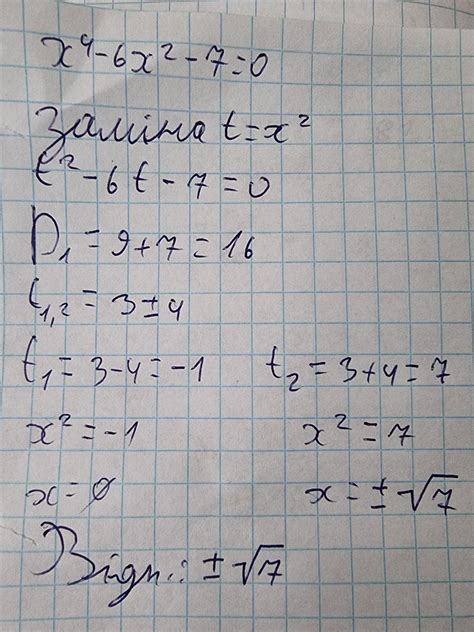 x⁴-6x²-7=0
Заміна t=x²
t²-6t-7=0
D₁=9+7=16
t₁,₂=3±4
t₁=3-4=-1 t₂=3+4=7
x²=-1 x²=7
x=∅ x=±√7
Відп.: ±√7